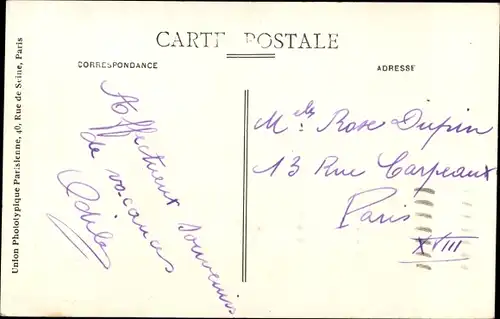 CARTE POSTALE
CORRESPONDANCE
ADRESSE
Union Phototypique Parisienne, 40, Rue de Seine, Paris
Affectueux souvenirs
de vacances
Odile
Mlle Rose Dupin
13 Rue Carpeaux
Paris
XVIII